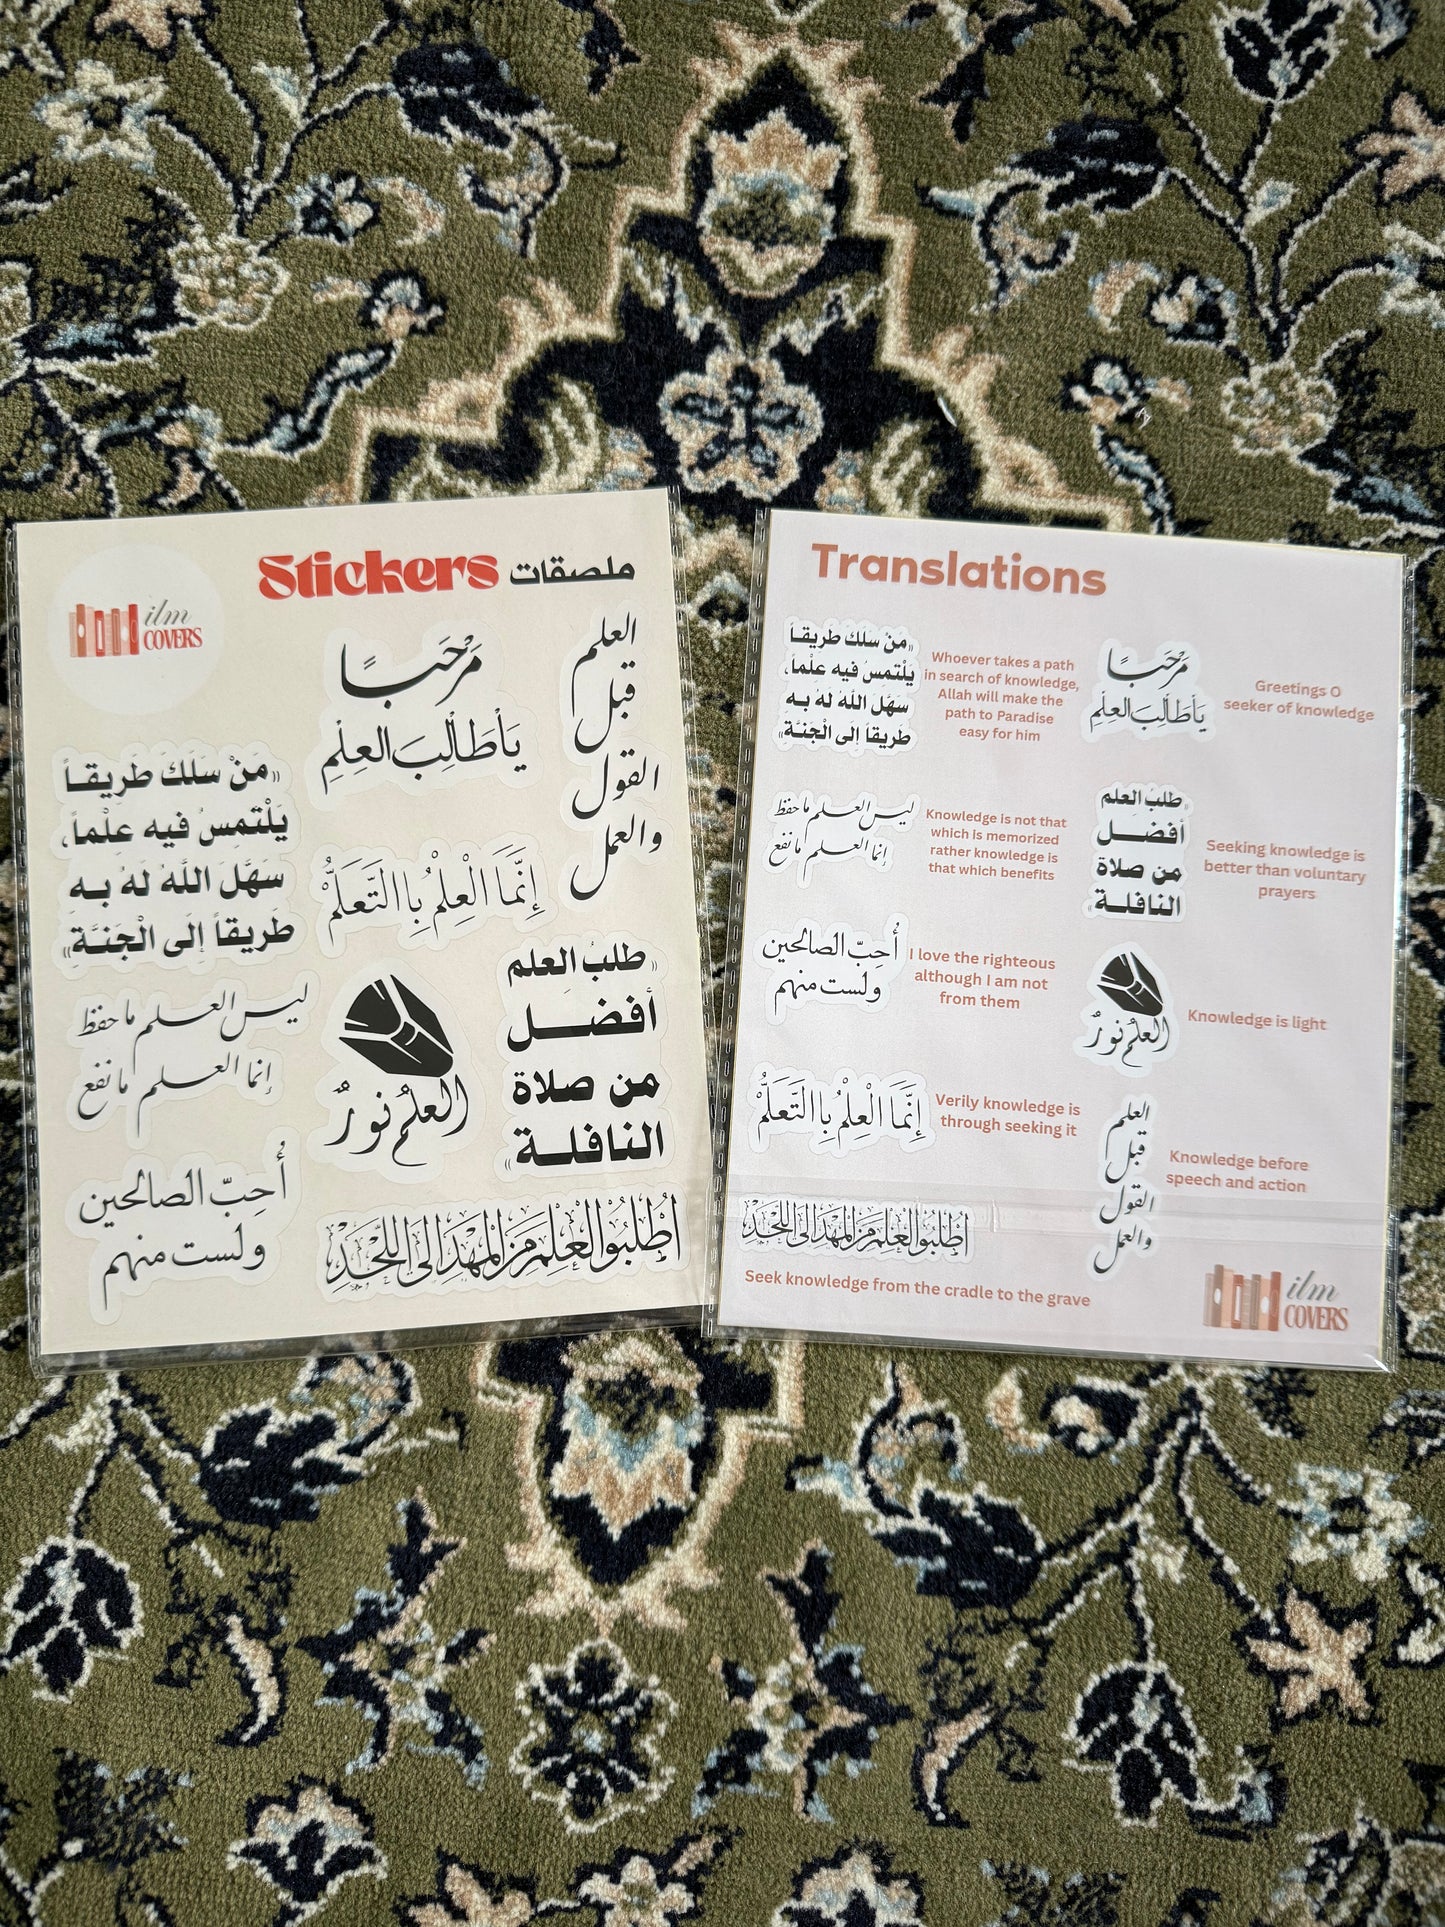 Stickers ملصقات
ilm
COVERS
مَرْحَبًا
يَاْطَالِبَ العِلْمِ
العلم
قبل
القول
والعمل
«مَنْ سَلَكَ طَرِيقاً
يَلْتمِسُ فيه عِلْماً،
سَهَّلَ اللَّهُ لَهُ بِه
طَريقاً إلَى الْجَنَّةِ»
إِنَّمَا الْعِلْمُ بِاالتَّعَلُّمْ
ليس العلم ما حفظ
إنما العلم ما نفع
العلمُ نورٌ
«طلبُ العلم
أفضل
من صلاة
النافلة»
أُحِبّ الصالحين
ولست منهم
اُطْلُبُوْا الْعِلْمَ مِنَ الْمَهْدِ اِلَى اللَّحْدِ
Translations
«مَنْ سَلَكَ طَرِيقاً
يَلْتمِسُ فيه عِلْماً،
سَهَّلَ اللَّهُ لَهُ بِه
طَريقاً إلَى الْجَنَّةِ»
Whoever takes a path
in search of knowledge,
Allah will make the
path to Paradise
easy for him
مَرْحَبًا
يَاْطَالِبَ العِلْمِ
Greetings O
seeker of knowledge
ليس العلم ما حفظ
إنما العلم ما نفع
Knowledge is not that
which is memorized
rather knowledge is
that which benefits
«طلبُ العلم
أفضل
من صلاة
النافلة»
Seeking knowledge is
better than voluntary
prayers
أُحِبّ الصالحين
ولست منهم
I love the righteous
although I am not
from them
العلمُ نورٌ
Knowledge is light
إِنَّمَا الْعِلْمُ بِاالتَّعَلُّمْ
Verily knowledge is
through seeking it
العلم
قبل
القول
والعمل
Knowledge before
speech and action
اُطْلُبُوْا الْعِلْمَ مِنَ الْمَهْدِ اِلَى اللَّحْدِ
Seek knowledge from the cradle to the grave
ilm
COVERS